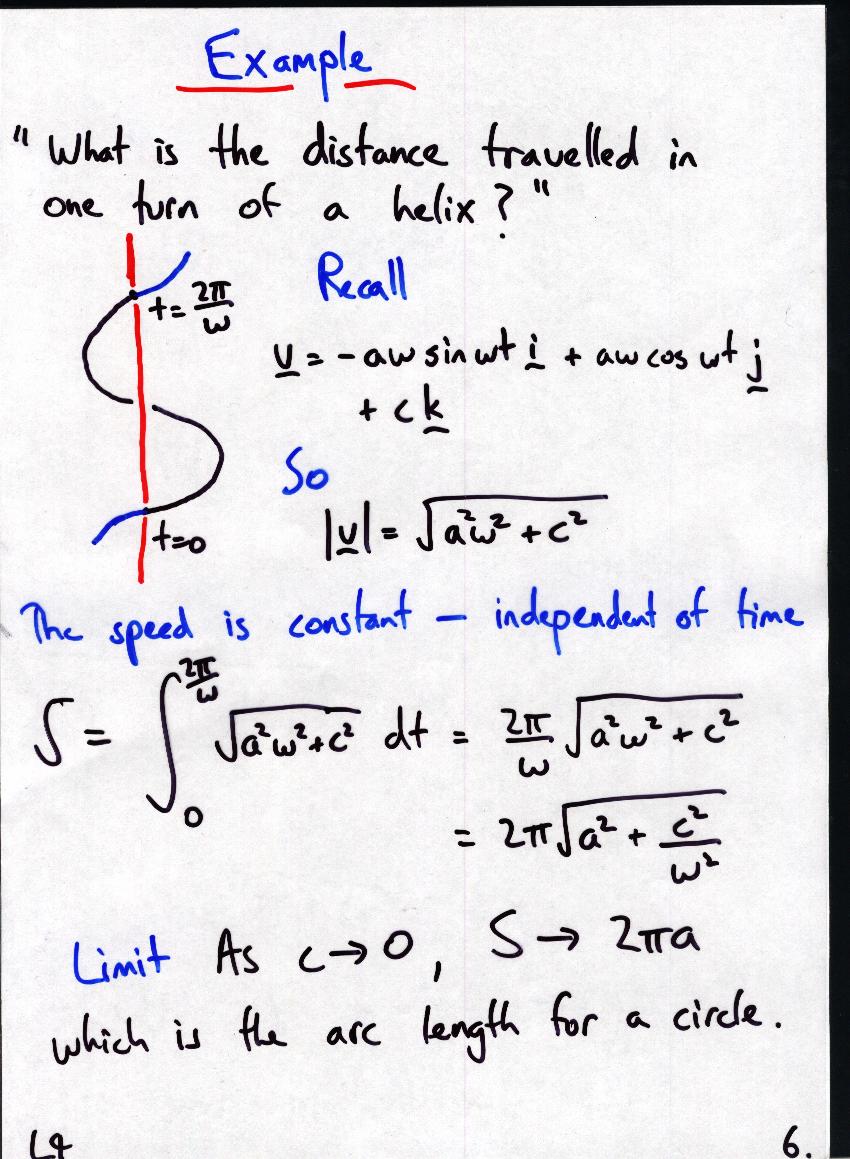 Example
"What is the distance travelled in
one turn of a helix?"
t = 2π/ω
Recall
v = -aω sin ωt i + aω cos ωt j
+ c k
So
|v| = √(a²ω² + c²)
t=0
The speed is constant – independent of time
S = ∫₀^(2π/ω) √(a²ω²+c²) dt = 2π/ω √(a²ω² + c²)
= 2π√(a² + c²/ω²)
Limit As c → 0, S → 2πa
which is the arc length for a circle.
L4 6.